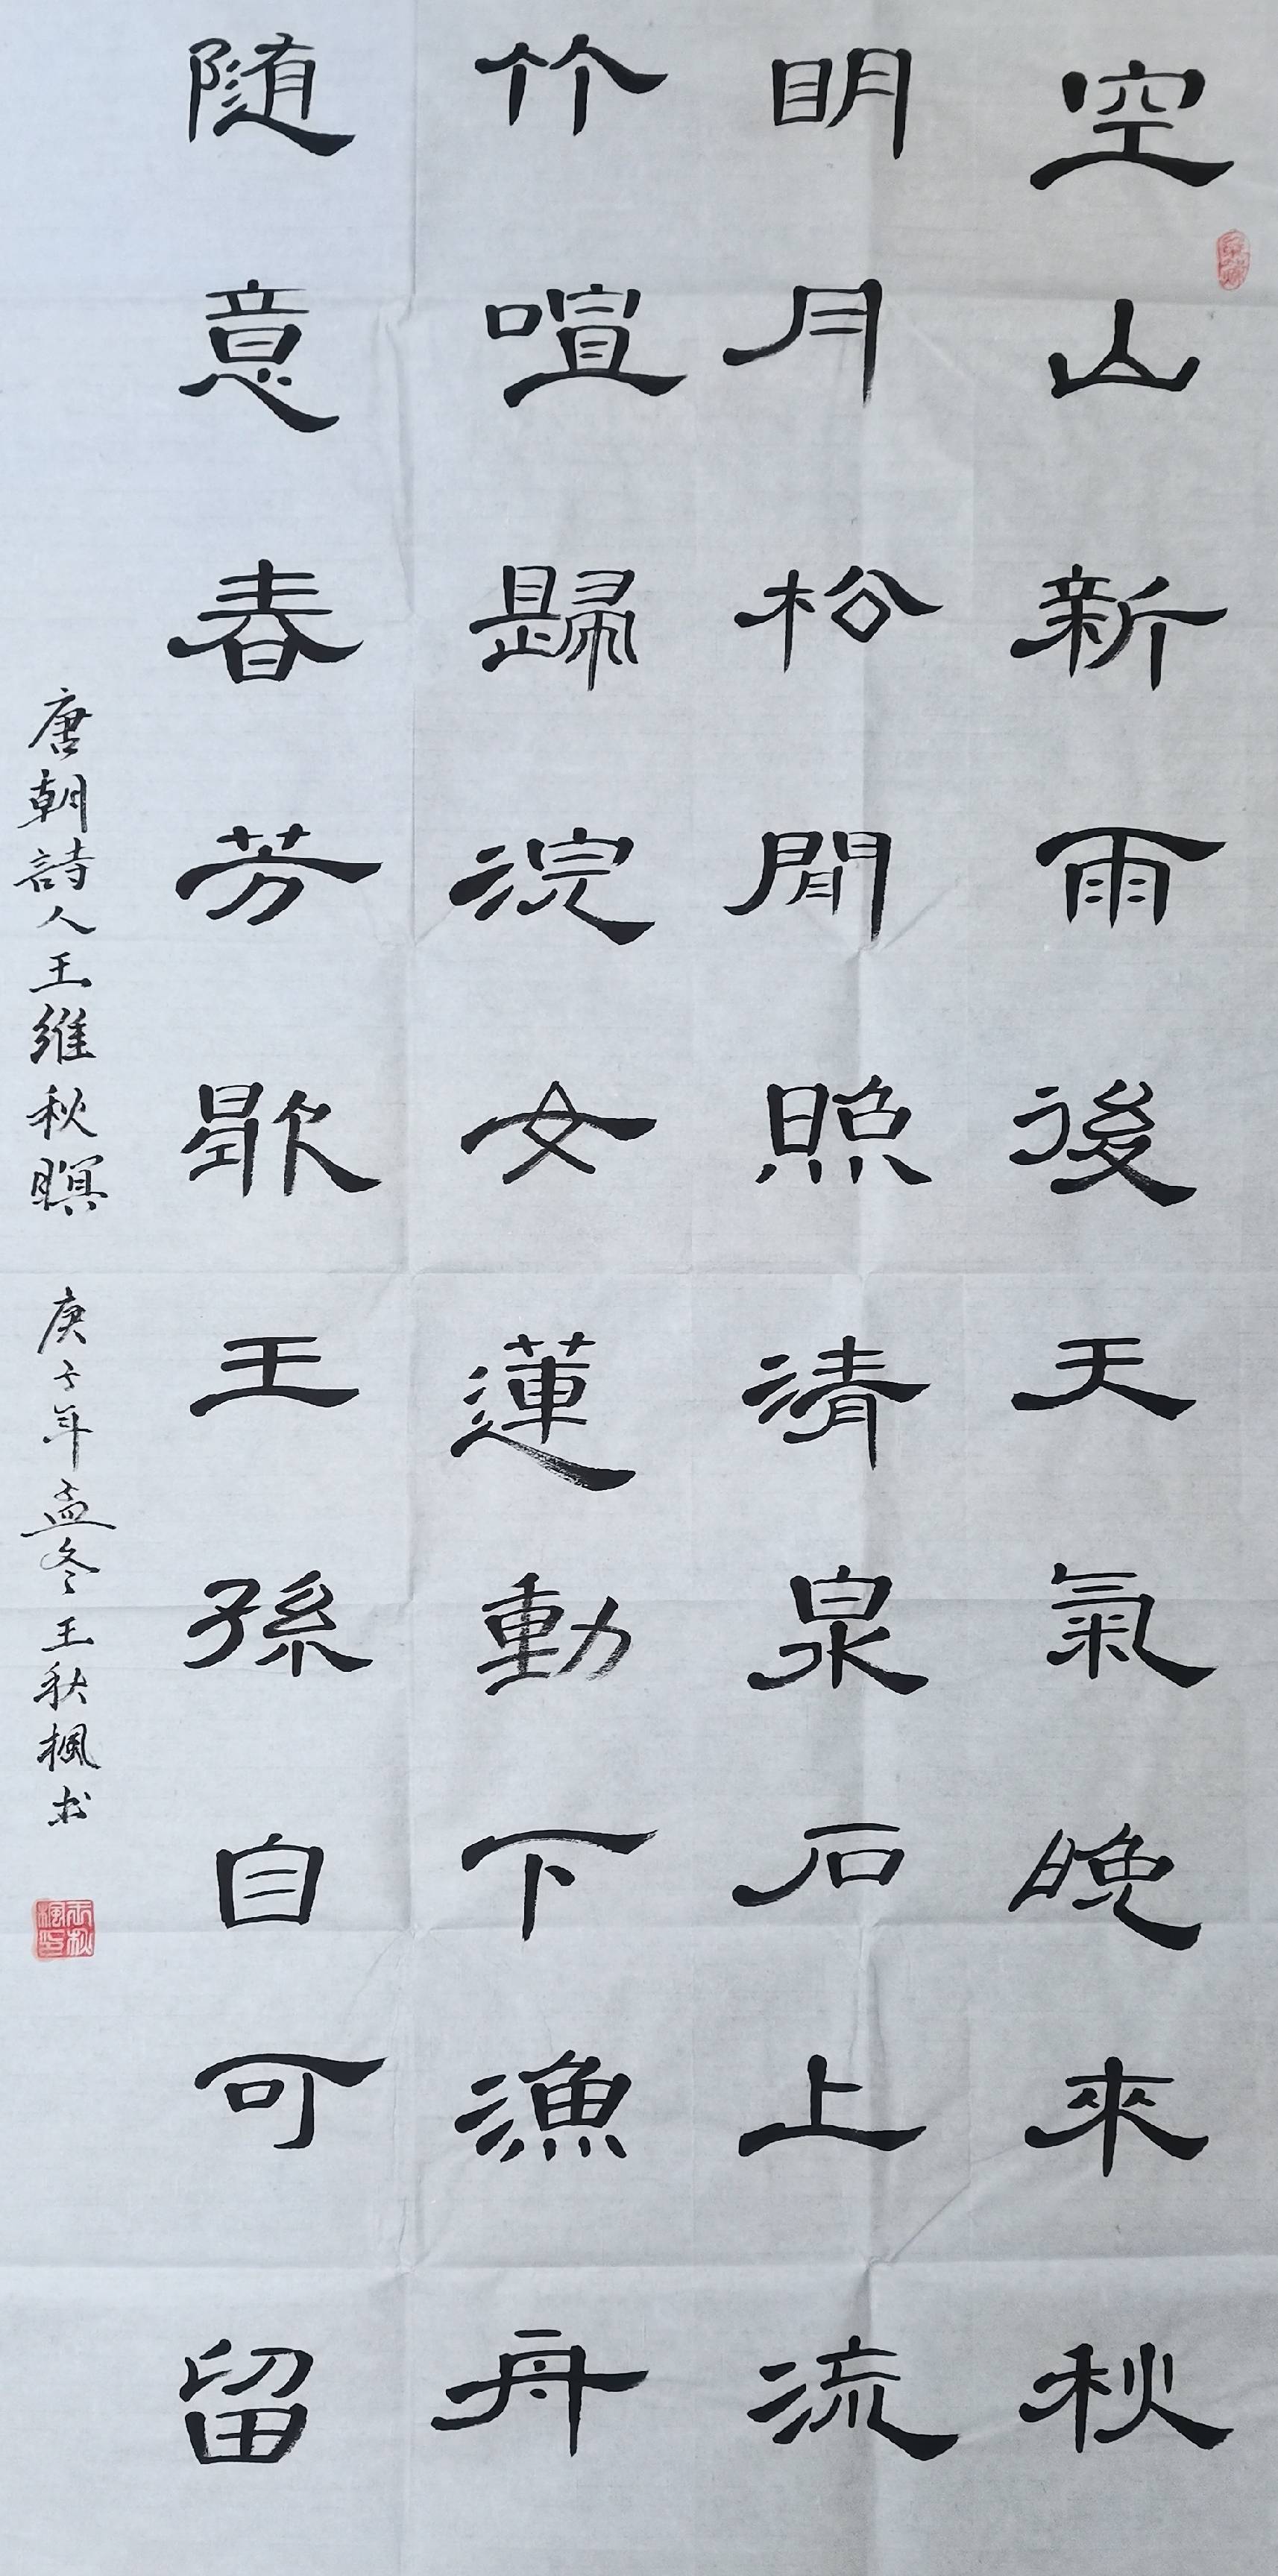 空山新雨後天氣晚來秋
明月松間照清泉石上流
竹喧歸浣女蓮動下漁舟
随意春芳歇王孫自可留
唐朝詩人王維秋暝 庚子年孟冬王秋楓书
王秋楓印